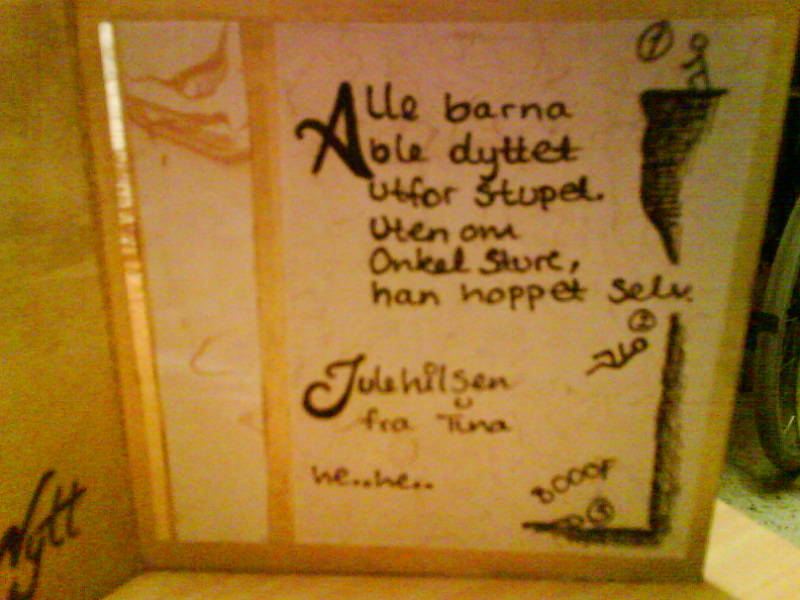 Alle barna
ble dyttet
utfor stupet.
Uten om
Onkel Sture,
han hoppet selv.
Julehilsen
fra Tina
he..he..
1
2
BOOOF
3
Nytt